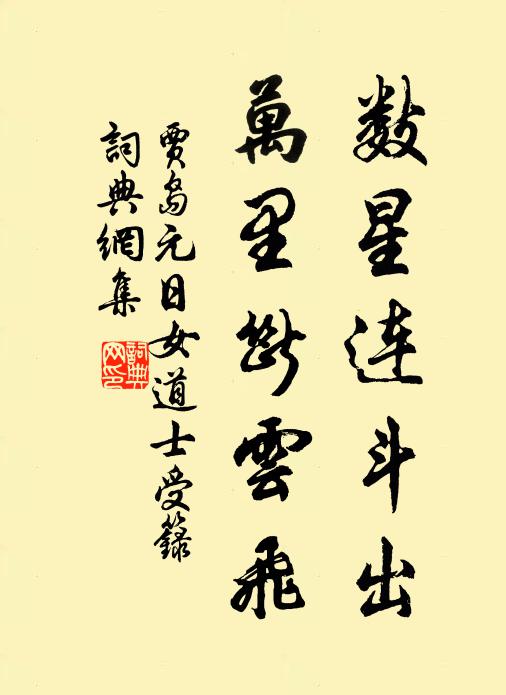 数星連斗出
萬里斷雲飛
賈島元日女道士受籙
詞典網集
詞典網印